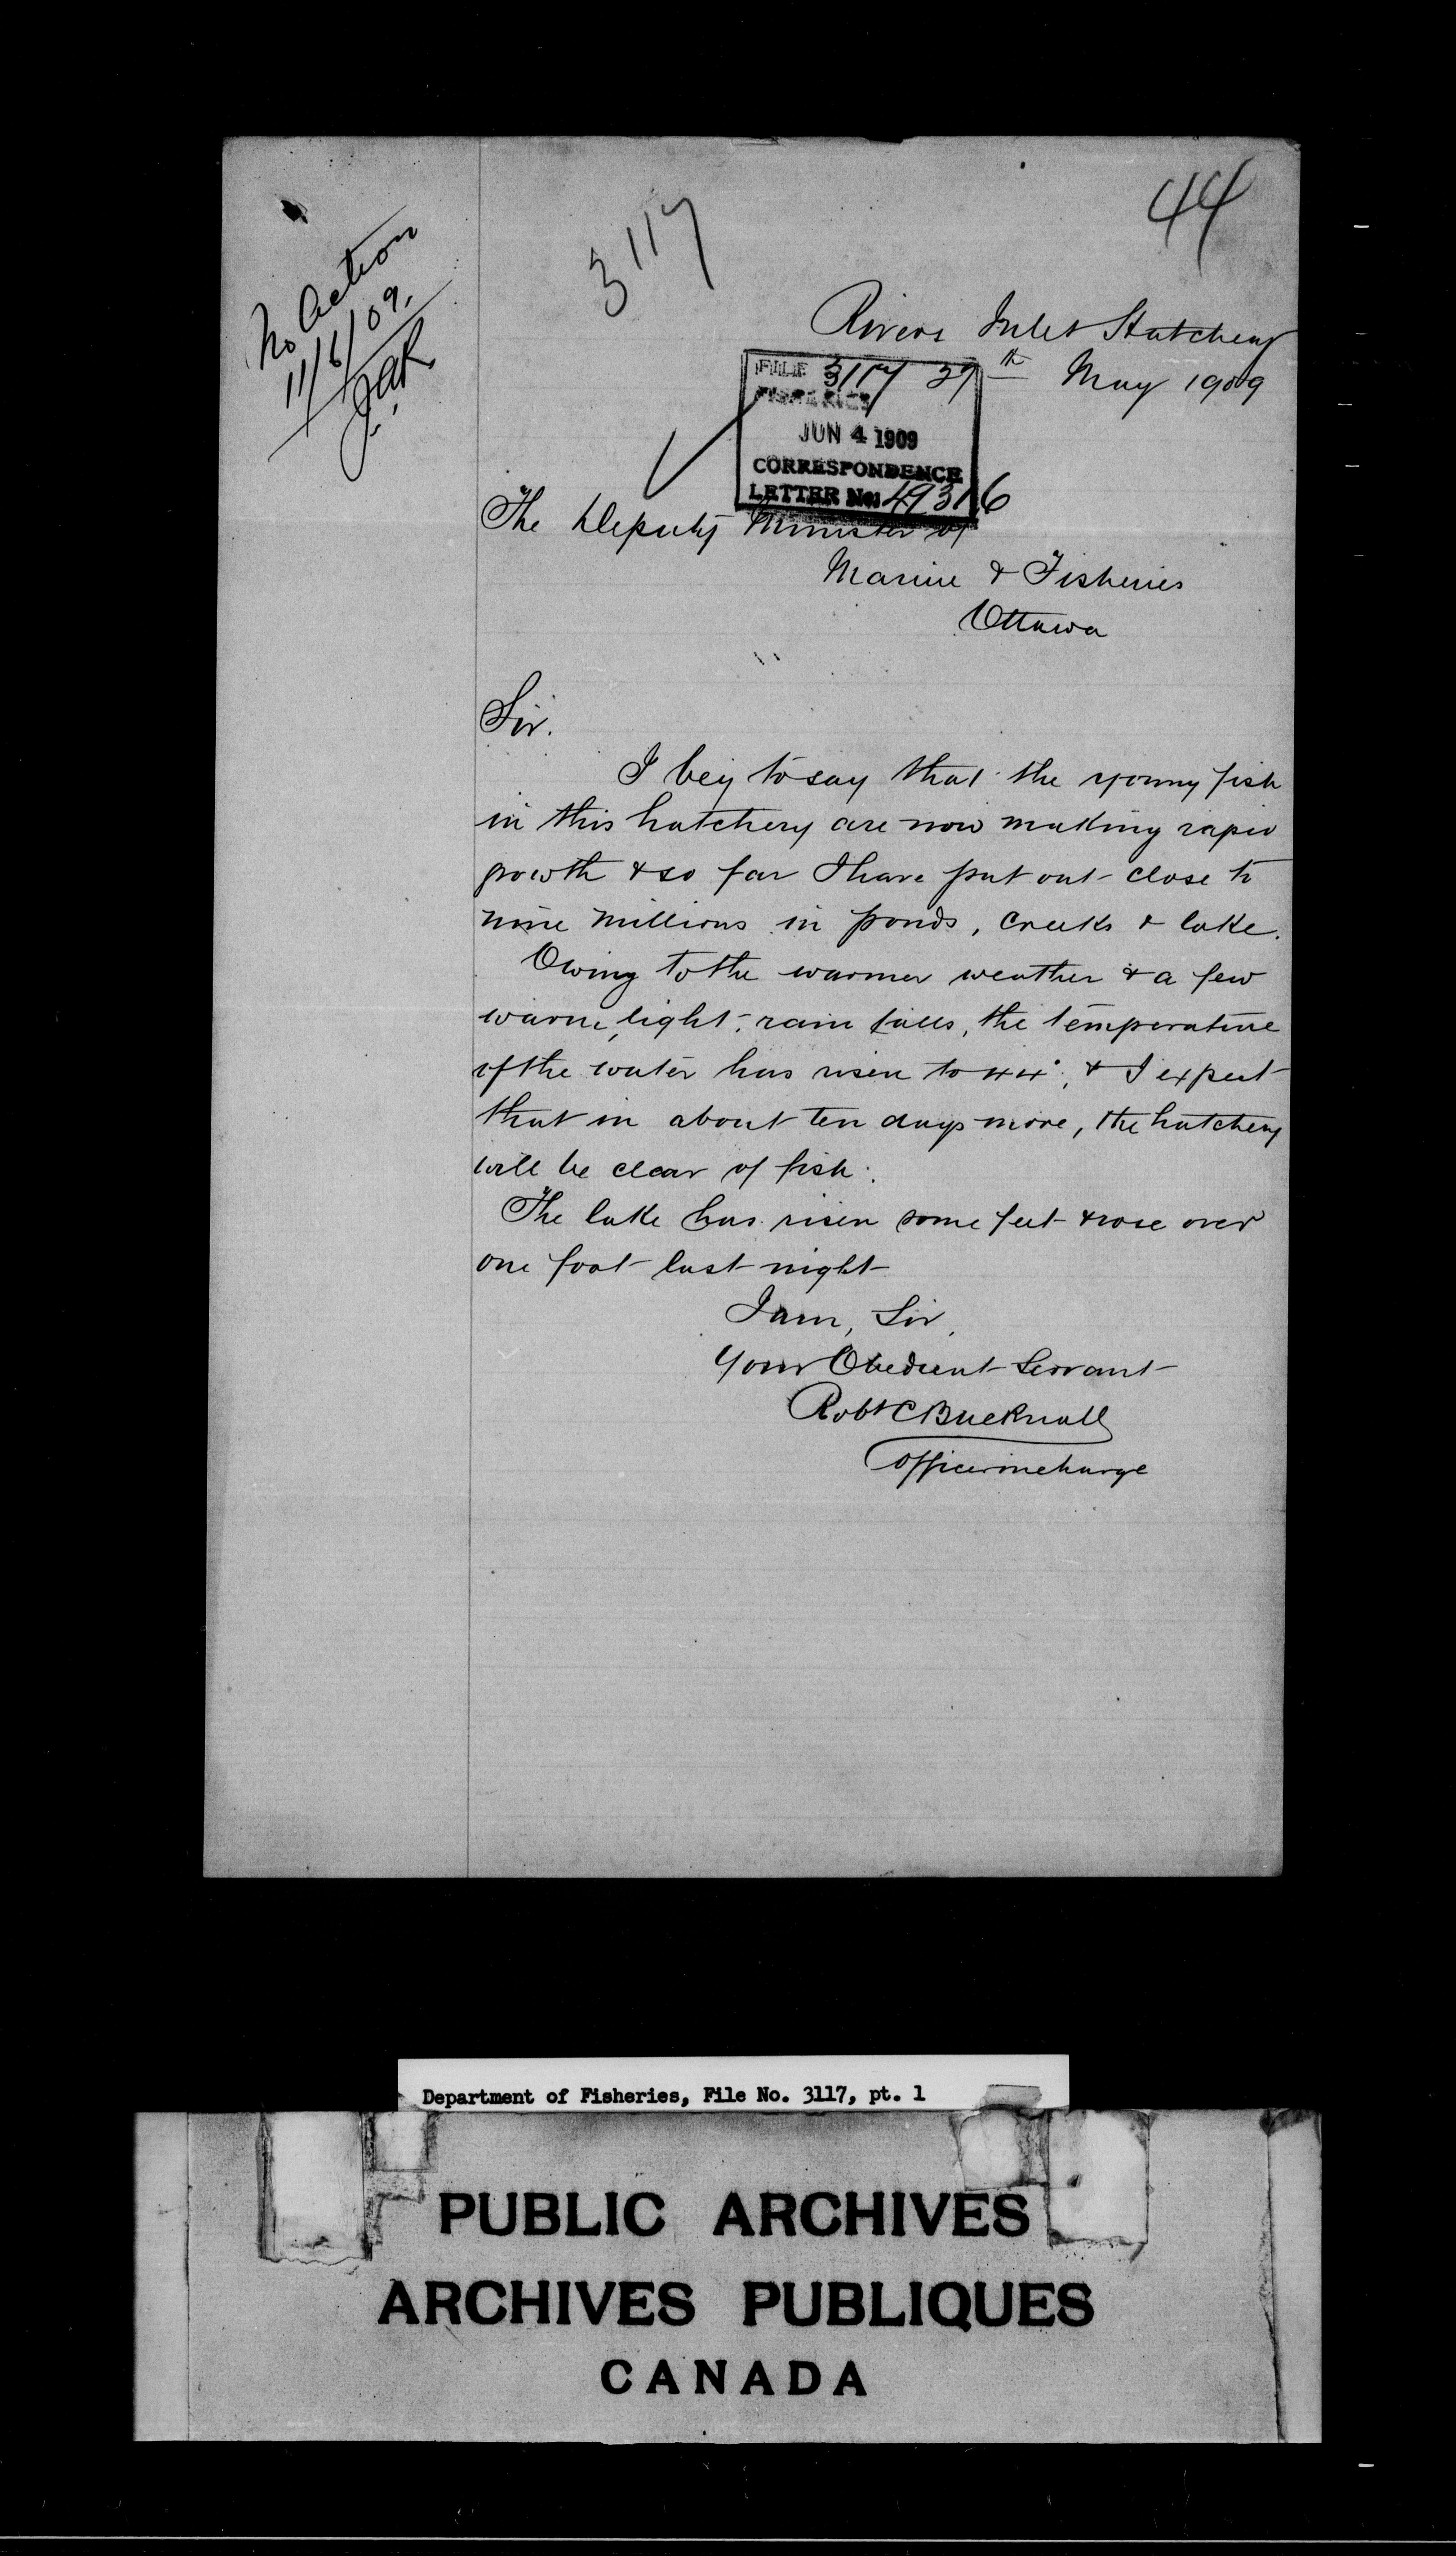 44
3117
No Action
11/6/09.
Rivers Inlet Hatchery
27th May 1909
FILE 3117
FISHERIES
JUN 4 1909
CORRESPONDENCE
LETTER No: 49316
The Deputy Minister of
Marine & Fisheries
Ottawa
Sir.
I beg to say that the young fish
in this hatchery are now making rapid
growth & so far I have put out close to
nine millions in ponds, creeks & lake.
Owing to the warmer weather & a few
warm, light, rain falls, the temperature
of the water has risen to 44°, & I expect
that in about ten days more, the hatchery
will be clear of fish.
The lake has risen some feet & rose over
one foot last night
I am, Sir,
Your Obedient Servant
Robt C Bucknall
Officer in charge
Department of Fisheries, File No. 3117, pt. 1
PUBLIC ARCHIVES
ARCHIVES PUBLIQUES
CANADA